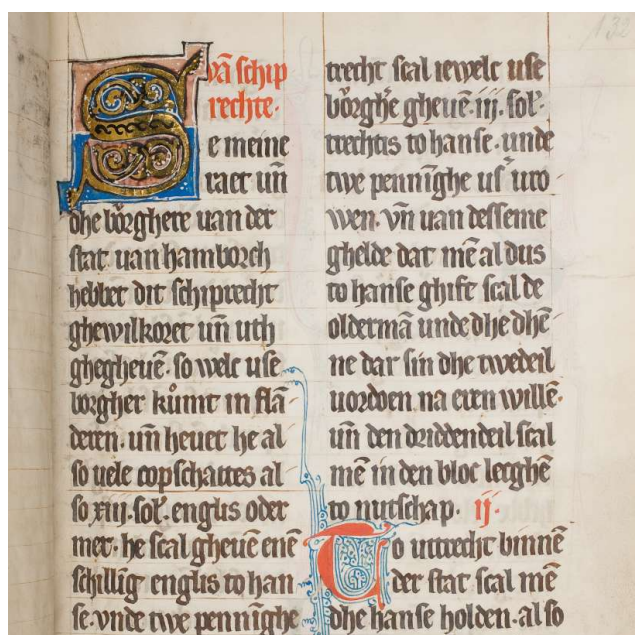 132
vā schip
rechte·
Se meine
raet uñ
dhe börghere uan der
stat uan hamborch
hebbet dit schiprecht
ghewilkoret uñ uth
ghegheuē· so welc use
borgher kůmt in flā
deren· uñ heuet he al
so uele copschattes al
so xiij· sol̛· englis oder
mer· he scal gheuē enē
schillīg englis to han
se· vnde twe pennīghe
trecht scal iewelc use
börghe gheuē· iij· sol̛·
trechtis to hanse· unde
twe pennīghe us̛ uro
wen· vñ uan desseme
ghelde dat mē al dus
to hanse ghift scal de
oldermā unde dhe dhē
ne dar sin dhe twedeil
uordoen na eren willē·
uñ den driddendeil scal
mē in den bloc lecghē
to nutschap· ij·
To uttrecht binnē
der stat scal mē
dhe hanse holden· al so